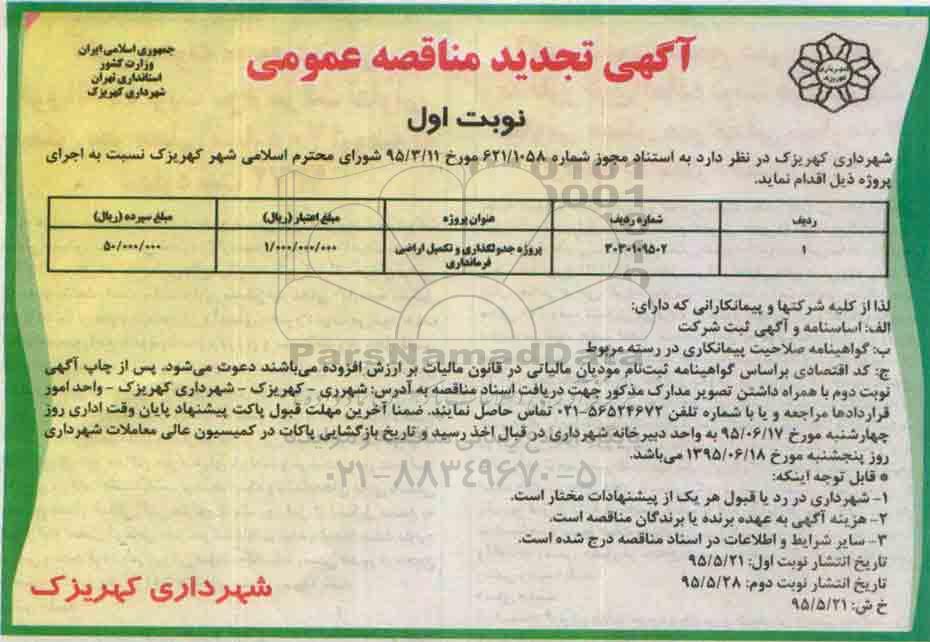 جمهوری اسلامی ایران
وزارت کشور
استانداری تهران
شهرداری کهریزک
آگهی تجدید مناقصه عمومی
نوبت اول
شهرداری کهریزک در نظر دارد به استناد مجوز شماره ۶۲۱/۱۰۵۸ مورخ ۹۵/۳/۱۱ شورای محترم اسلامی شهر کهریزک نسبت به اجرای
پروژه ذیل اقدام نماید.
ردیف شماره ردیف عنوان پروژه مبلغ اعتبار (ریال) مبلغ سپرده (ریال)
۱ ۳۰۳۰۱۰۹۵۰۲ پروژه جدولگذاری و تکمیل اراضی ۱/۰۰۰/۰۰۰/۰۰۰ ۵۰/۰۰۰/۰۰۰
فرمانداری
لذا از کلیه شرکتها و پیمانکارانی که دارای:
الف: اساسنامه و آگهی ثبت شرکت
ب: گواهینامه صلاحیت پیمانکاری در رسته مربوط
ParsNamadData
ج: کد اقتصادی براساس گواهینامه ثبت‌نام مودیان مالیاتی در قانون مالیات بر ارزش افزوده می‌باشند دعوت می‌شود. پس از چاپ آگهی
نوبت دوم با همراه داشتن تصویر مدارک مذکور جهت دریافت اسناد مناقصه به آدرس: شهرری - کهریزک - شهرداری کهریزک - واحد امور
قراردادها مراجعه و یا با شماره تلفن ۵۶۵۲۴۶۷۲-۰۲۱ تماس حاصل نمایند. ضمنا آخرین مهلت قبول پاکت پیشنهاد پایان وقت اداری روز
چهارشنبه مورخ ۹۵/۰۶/۱۷ به واحد دبیرخانه شهرداری در قبال اخذ رسید و تاریخ بازگشایی پاکات در کمیسیون عالی معاملات شهرداری
روز پنجشنبه مورخ ۱۳۹۵/۰۶/۱۸ می‌باشد.
۰۲۱-۸۸۳۴۹۶۷۰-۵
* قابل توجه اینکه:
۱- شهرداری در رد یا قبول هر یک از پیشنهادات مختار است.
۲- هزینه آگهی به عهده برنده یا برندگان مناقصه است.
۳- سایر شرایط و اطلاعات در اسناد مناقصه درج شده است.
تاریخ انتشار نوبت اول: ۹۵/۵/۲۱
تاریخ انتشار نوبت دوم: ۹۵/۵/۲۸
خ ش: ۹۵/۵/۲۱
شهرداری کهریزک